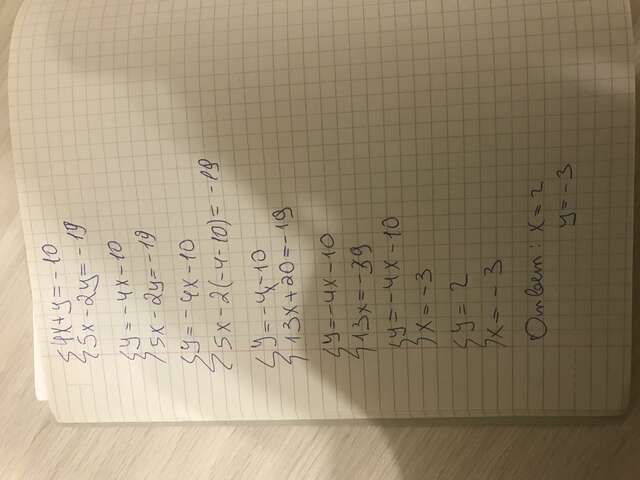 {4x+y=-10
{5x-2y=-19
{y=-4x-10
{5x-2y=-19
{y=-4x-10
{5x-2(-4-10)=-19
{y=-4x-10
{13x+20=-19
{y=-4x-10
{13x=-39
{y=-4x-10
{x=-3
{y=2
{x=-3
Ответ: x=2
y=-3